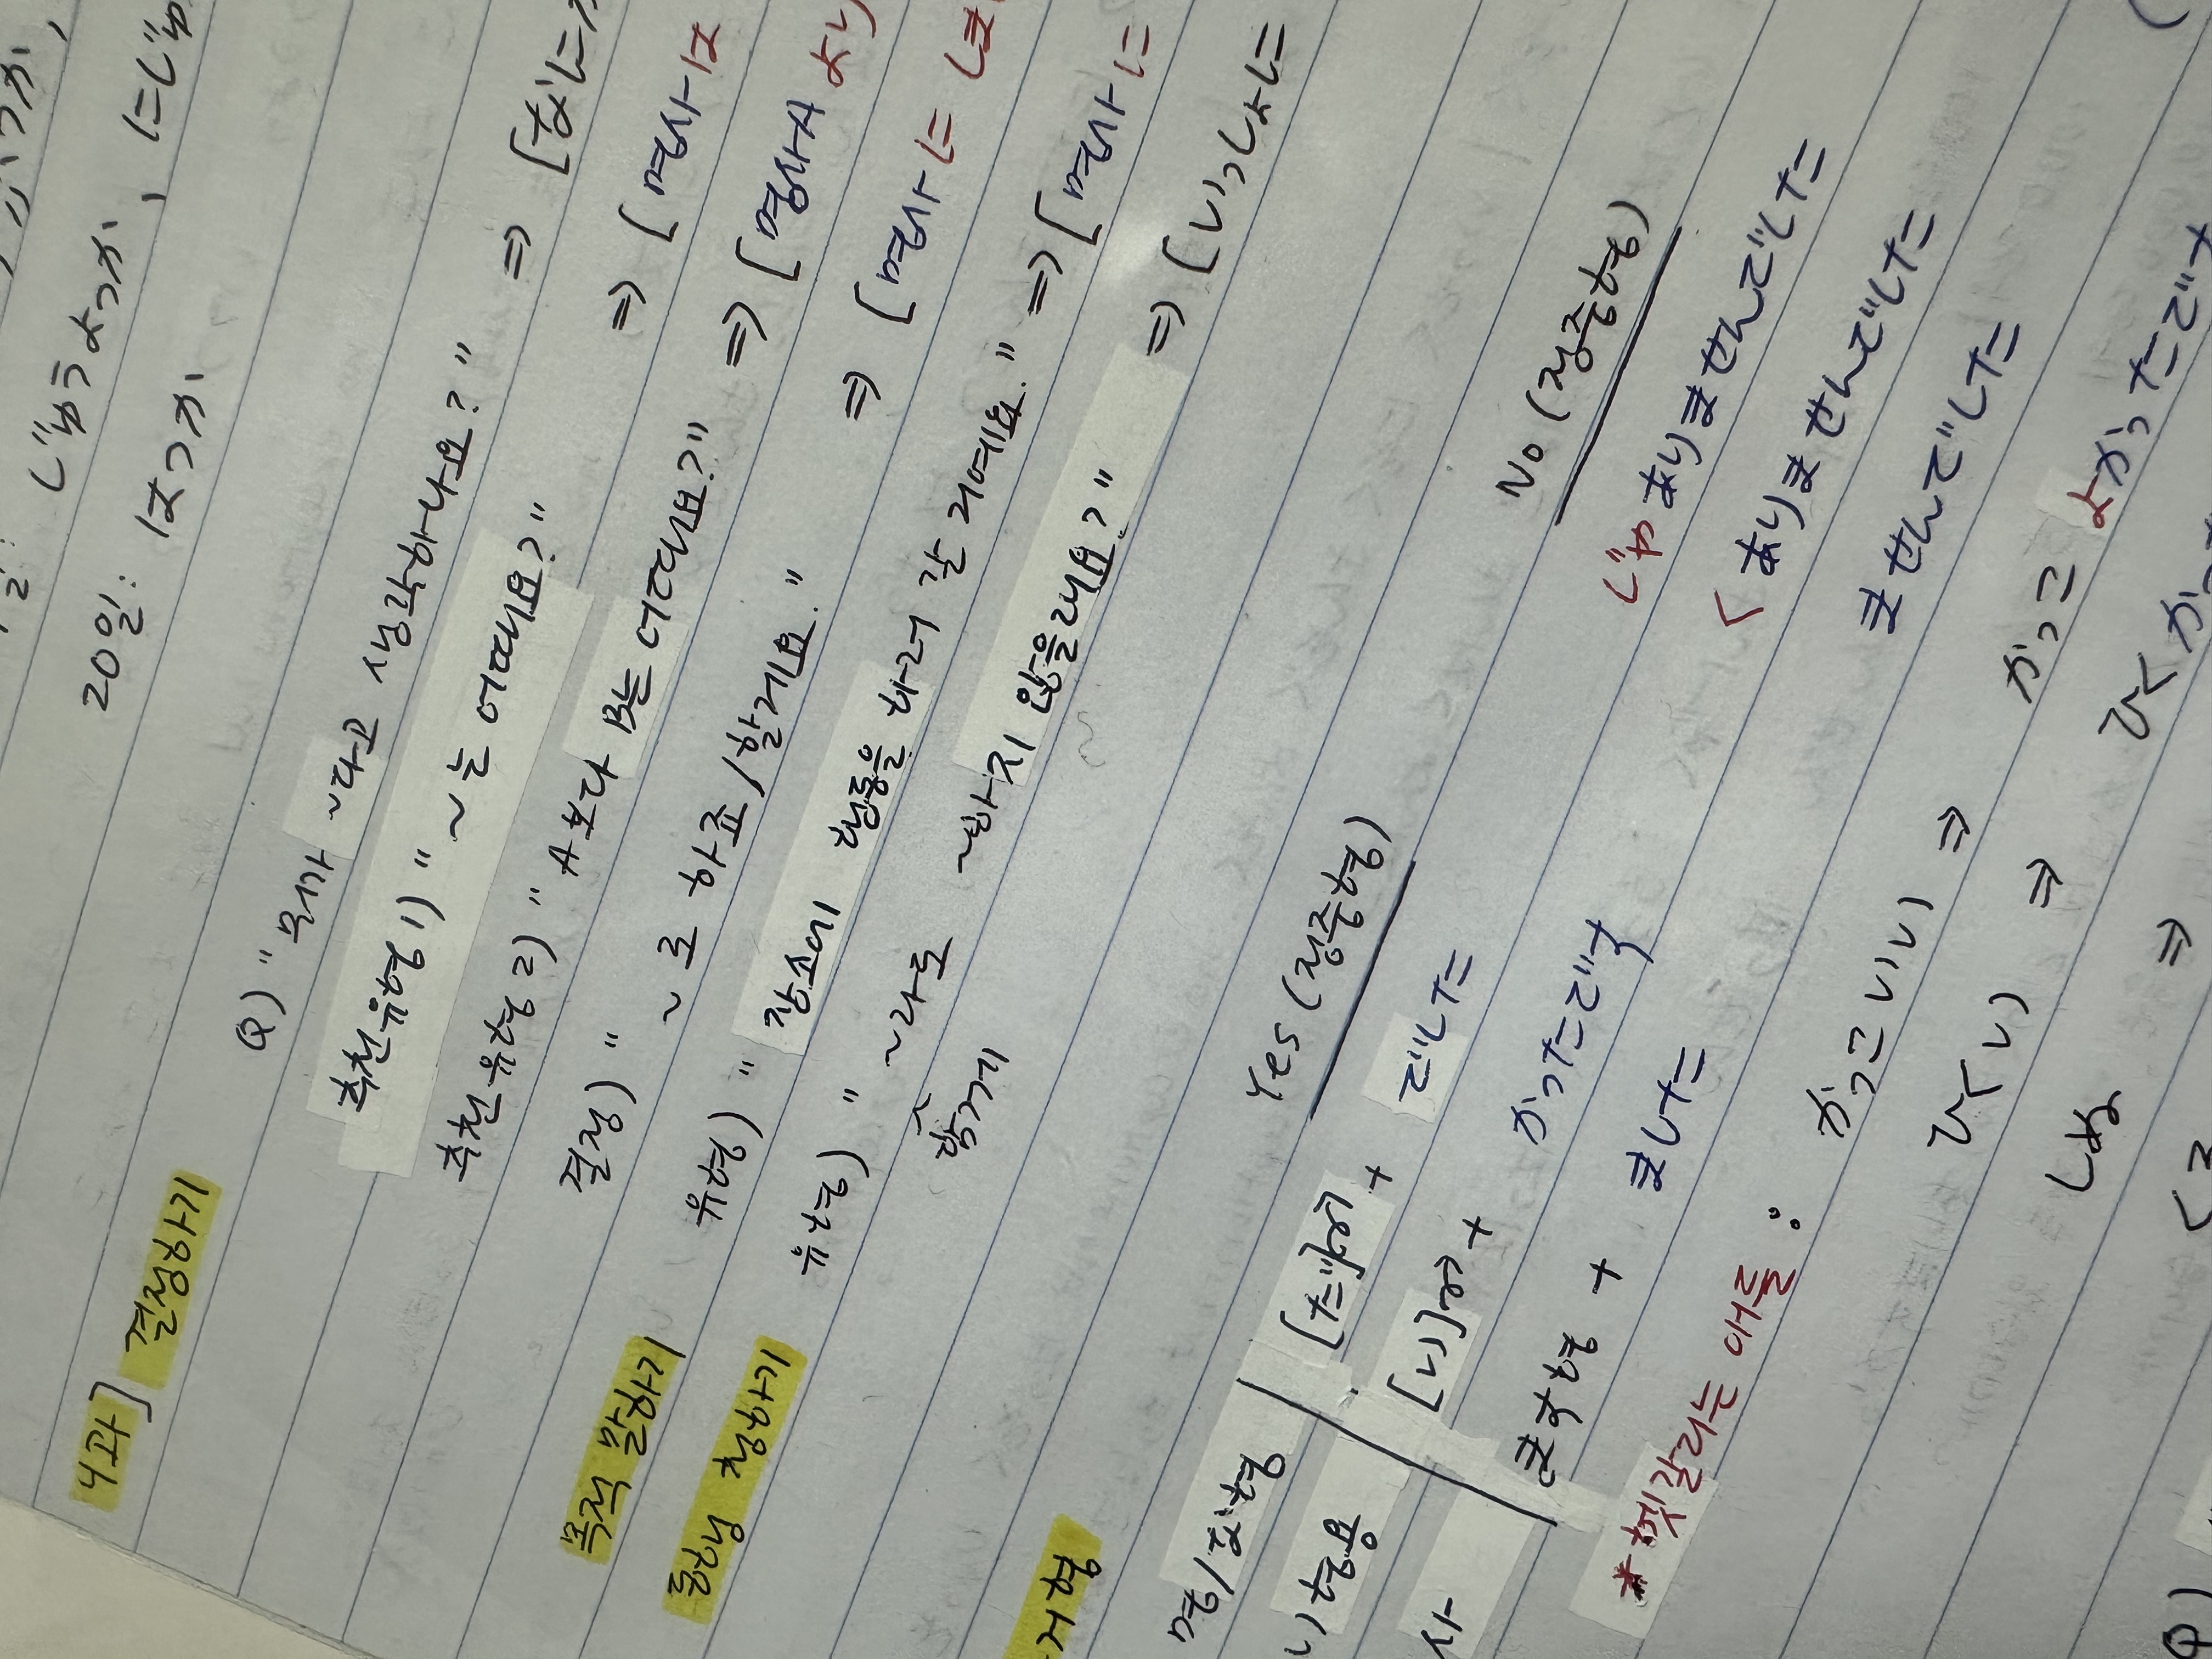 じゅうよっか, にじゅ
20일: はつか
4과] 결정하기
Q) "뭐가 ~라고 생각하나요?" ⇒ [なに
추천유형1) "~는 어때요?" ⇒ [명사は
추천유형2) "A보다 B는 어때요?" ⇒ [명사A より
결정) "~로 하죠/할게요." ⇒ [명사に しま
목적 말하기 유형) "장소에 행동을 하러 갈 거예요." ⇒ [명사に
동행 청하기 유형) "~라도 ~하지 않을래요?" ⇒ [いっしょに
함께
거형
Yes (정중형) No (정중형)
명/な형 [だ] + でした じゃありませんでした
い형용 [い] + かったです くありませんでした
사 ます형 + ました ませんでした
*헷갈리는 애들: かっこいい ⇒ かっこよかったです
ひくい ⇒ ひくか
しぬ ⇒
くる
Q)